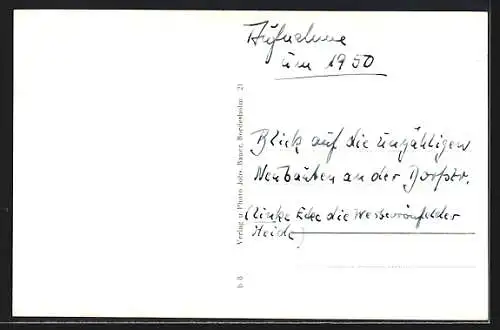 Aufnahme
um 1950
Blick auf die unzähligen
Neubauten an der Dorfstr.
(linke Ecke die
Heide)
Verlag u. Photo Johs. Bauer, Bordesholm 21
b 8